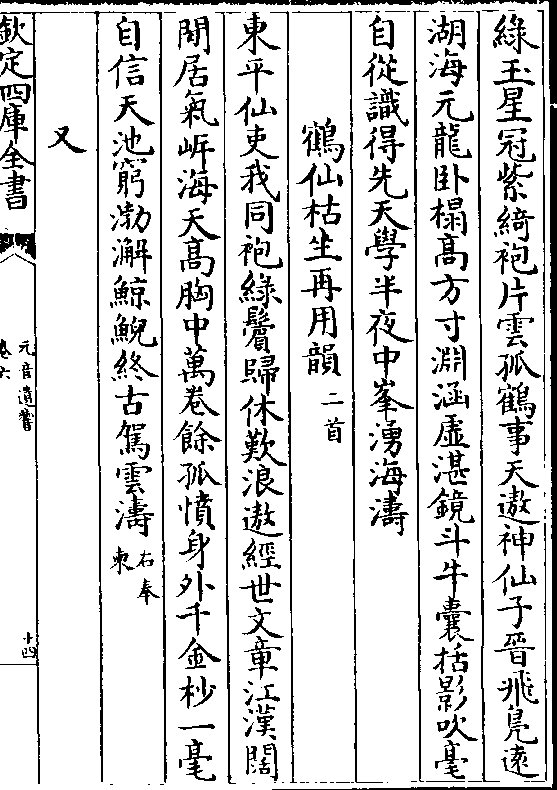 綠玉星冠紫綺袍片雲孤鶴事天遨神仙子晉飛鳧遠
湖海元龍卧榻高方寸淵涵虛湛鏡斗牛囊括影吹毫
自從識得先天學半夜中峯湧海濤
鶴仙枯生再用韻二首
東平仙吏我同袍綠鬢歸休歎浪遨經世文章江漢闊
閒居氣岸海天高胸中萬卷餘孤憤身外千金杪一毫
自信天池窮渤澥鯨鯢終古駕雲濤右奉東
又
欽定四庫全書
元音遺響
卷六
十四